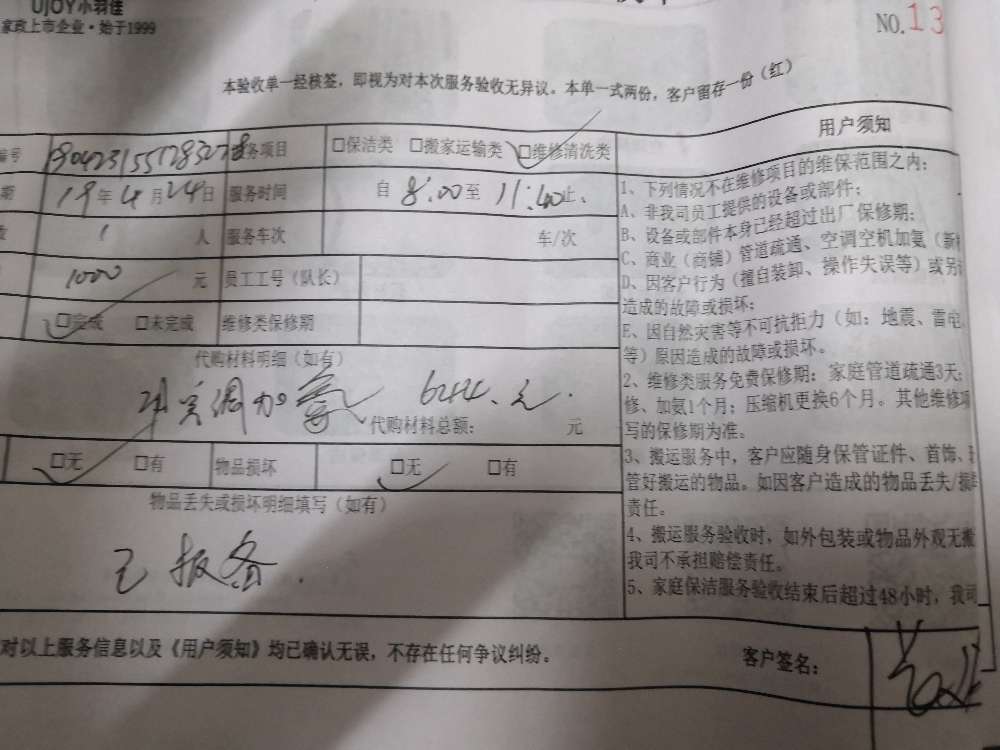 UJOY小羽佳
家政上市企业·始于1999
NO.13
本验收单一经核签，即视为对本次服务验收无异议。本单一式两份，客户留存一份（红）
编号 务项目 □保洁类 □搬家运输类 □维修清洗类
期 19年4月24日 服务时间 自 8:00至 11:40止、
数 1 人 服务车次 车/次
1000 元 员工工号（队长）
□完成 □未完成 维修类保修期
代购材料明细（如有）
空调加氨 元.
代购材料总额： 元
□无 □有 物品损坏 □无 □有
物品丢失或损坏明细填写（如有）
已报备.
用户须知
1、下列情况不在维修项目的维保范围之内：
A、非我司员工提供的设备或部件；
B、设备或部件本身已经超过出厂保修期；
C、商业（商铺）管道疏通、空调空机加氨（新
D、因客户行为（擅自装卸、操作失误等）或另
造成的故障或损坏；
E、因自然灾害等不可抗拒力（如：地震、雷电
等）原因造成的故障或损坏。
2、维修类服务免费保修期：家庭管道疏通3天；
修、加氨1个月；压缩机更换6个月。其他维修项
写的保修期为准。
3、搬运服务中，客户应随身保管证件、首饰、
管好搬运的物品。如因客户造成的物品丢失/损
责任。
4、搬运服务验收时，如外包装或物品外观无搬
我司不承担赔偿责任。
5、家庭保洁服务验收结束后超过48小时，我司
对以上服务信息以及《用户须知》均已确认无误，不存在任何争议纠纷。 客户签名：